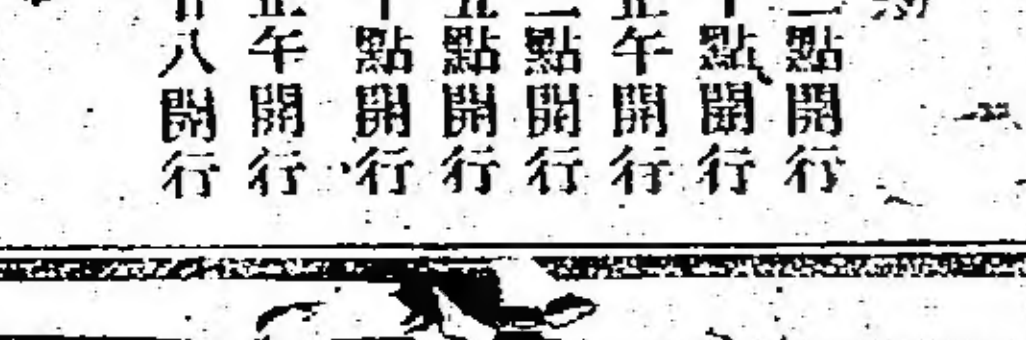 點開行
點開行
午開行
點開行
點開行
點開行
午開行
八開行